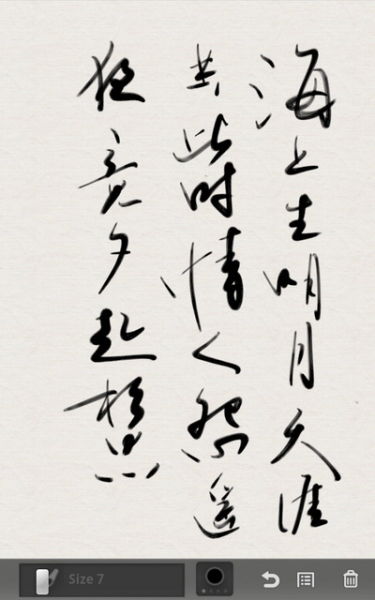 海上生明月天涯
共此时情人怨遥
夜竟夕起相思
Size 7